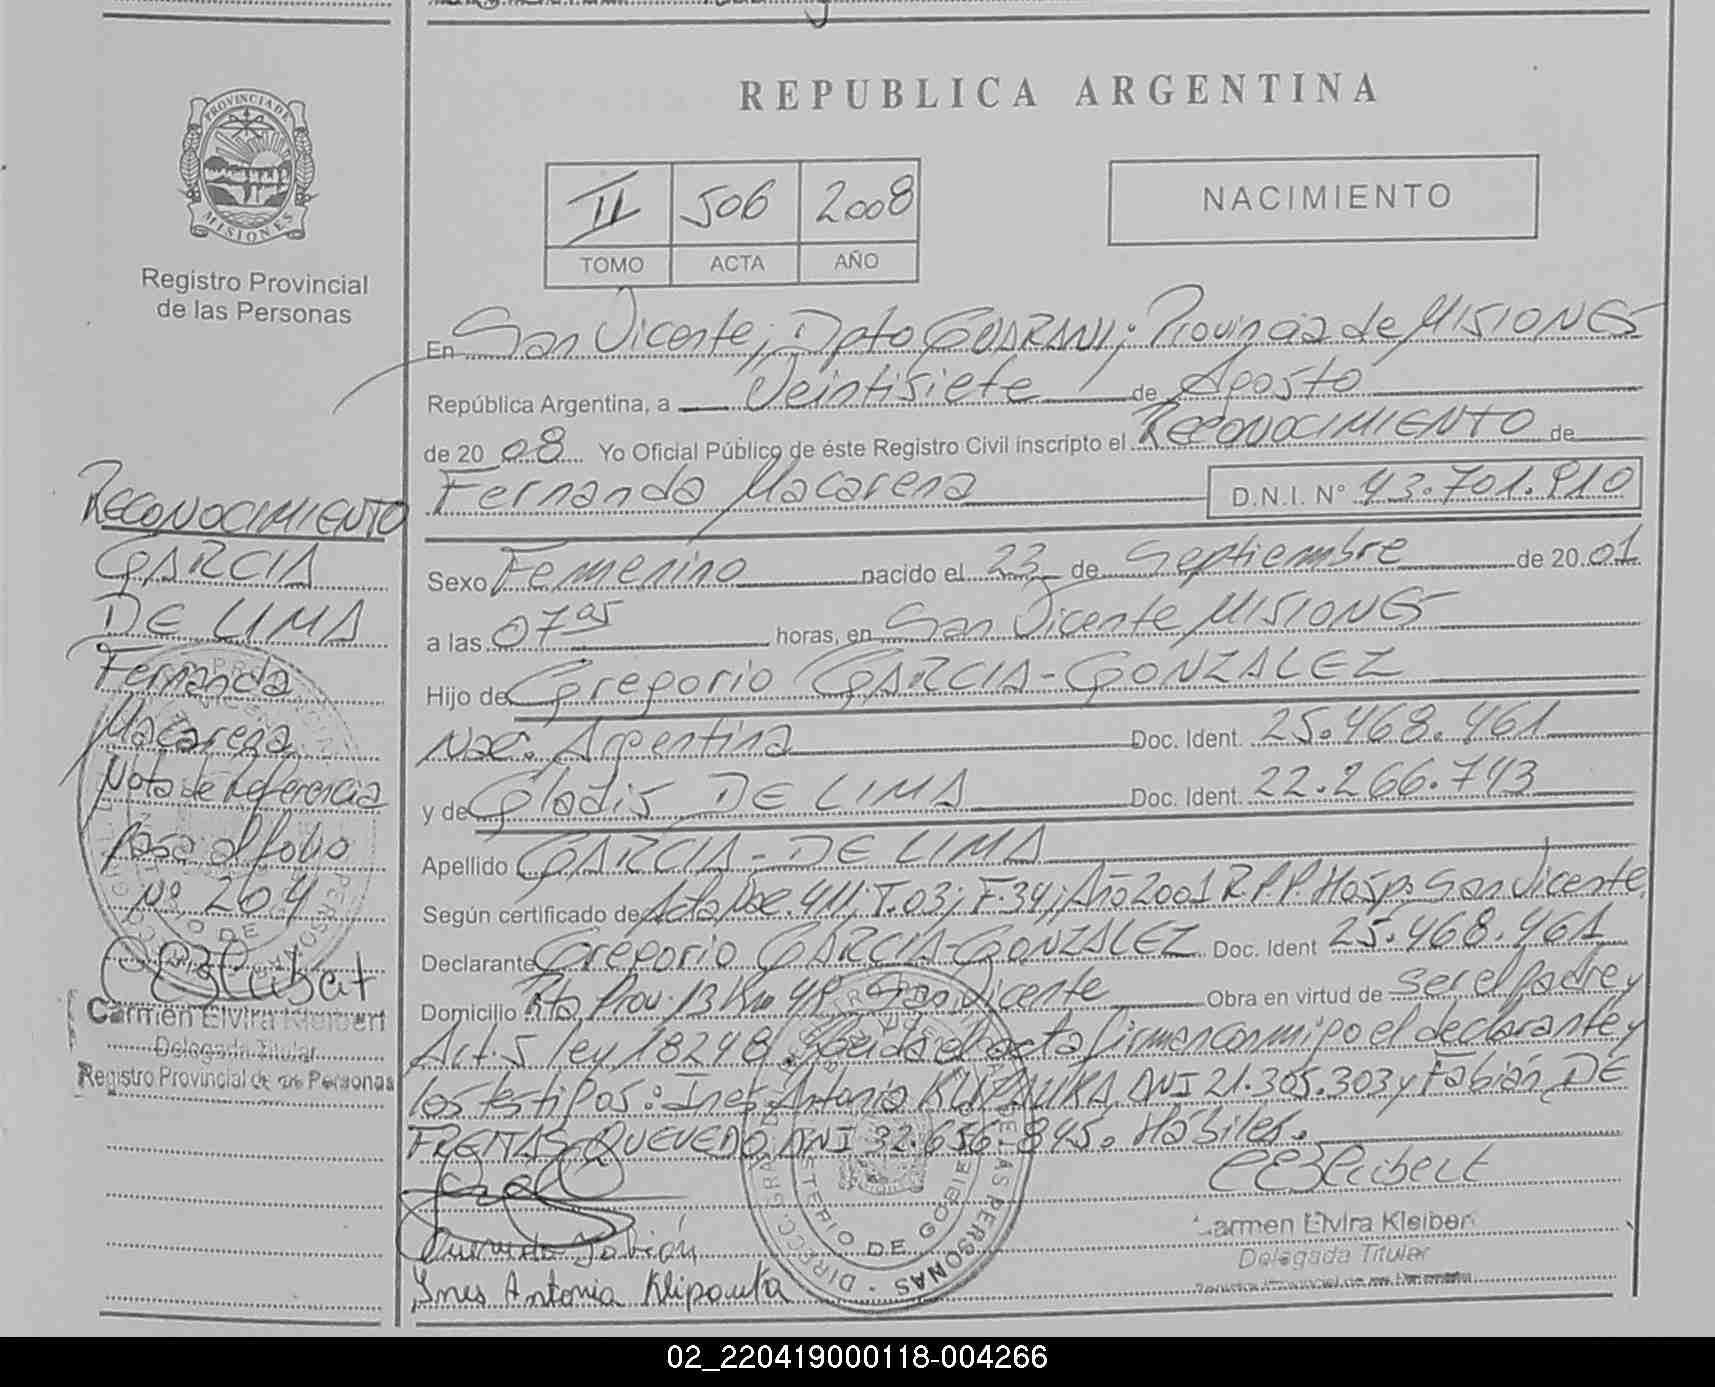 REPUBLICA ARGENTINA
PROVINCIA DE
MISIONES
Registro Provincial
de las Personas
II 506 2008
TOMO ACTA AÑO
NACIMIENTO
En San Vicente, Dpto GUARANI; Provincia de MISIONES
República Argentina, a Veintisiete de Agosto
de 20 08 Yo Oficial Público de éste Registro Civil inscripto el RECONOCIMIENTO de
Fernanda Macarena D.N.I. N° 43.701.810
Sexo Femenino nacido el 23 de Septiembre de 20 01
a las 07 05 horas, en San Vicente MISIONES
Hijo de Gregorio GARCIA-GONZALEZ
Nac. Argentina Doc. Ident. 25.468.461
y de Gladis DE LIMA Doc. Ident. 22.266.743
Apellido GARCIA-DE LIMA
Según certificado de Acta Nac. 411; T.03; F.34; Año 2001 R.P.P. Hosp. San Vicente
Declarante Gregorio GARCIA-GONZALEZ Doc. Ident 25.468.461
Domicilio Rta Prov. 13 Km 48 San Vicente Obra en virtud de ser el padre y
Art. 5 ley 18248. Leida el acta firman conmigo el declarante y
los testigos: Ines Antonia KLIPAUKA DNI 21.305.303 y Fabián DE
FREITAS QUEVEDO DNI 32.656.845. Hábiles.
Ines Antonia Klipauka
Carmen Elvira Kleiber
Delegada Titular
RECONOCIMIENTO
GARCIA
DE LIMA
Fernanda
Macarena
Nota de Referencia
Pasa al folio
Nº 264
Carmen Elvira Kleibert
Delegada Titular
Registro Provincial de las Personas
DE LAS PERSONAS
MINISTERIO DE GOBIERNO
02_220419000118-004266